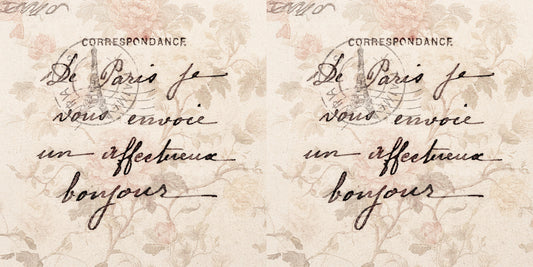 CORRESPONDANCE
De Paris je
vous envoie
un affectueux
bonjour
CORRESPONDANCE
De Paris je
vous envoie
un affectueux
bonjour